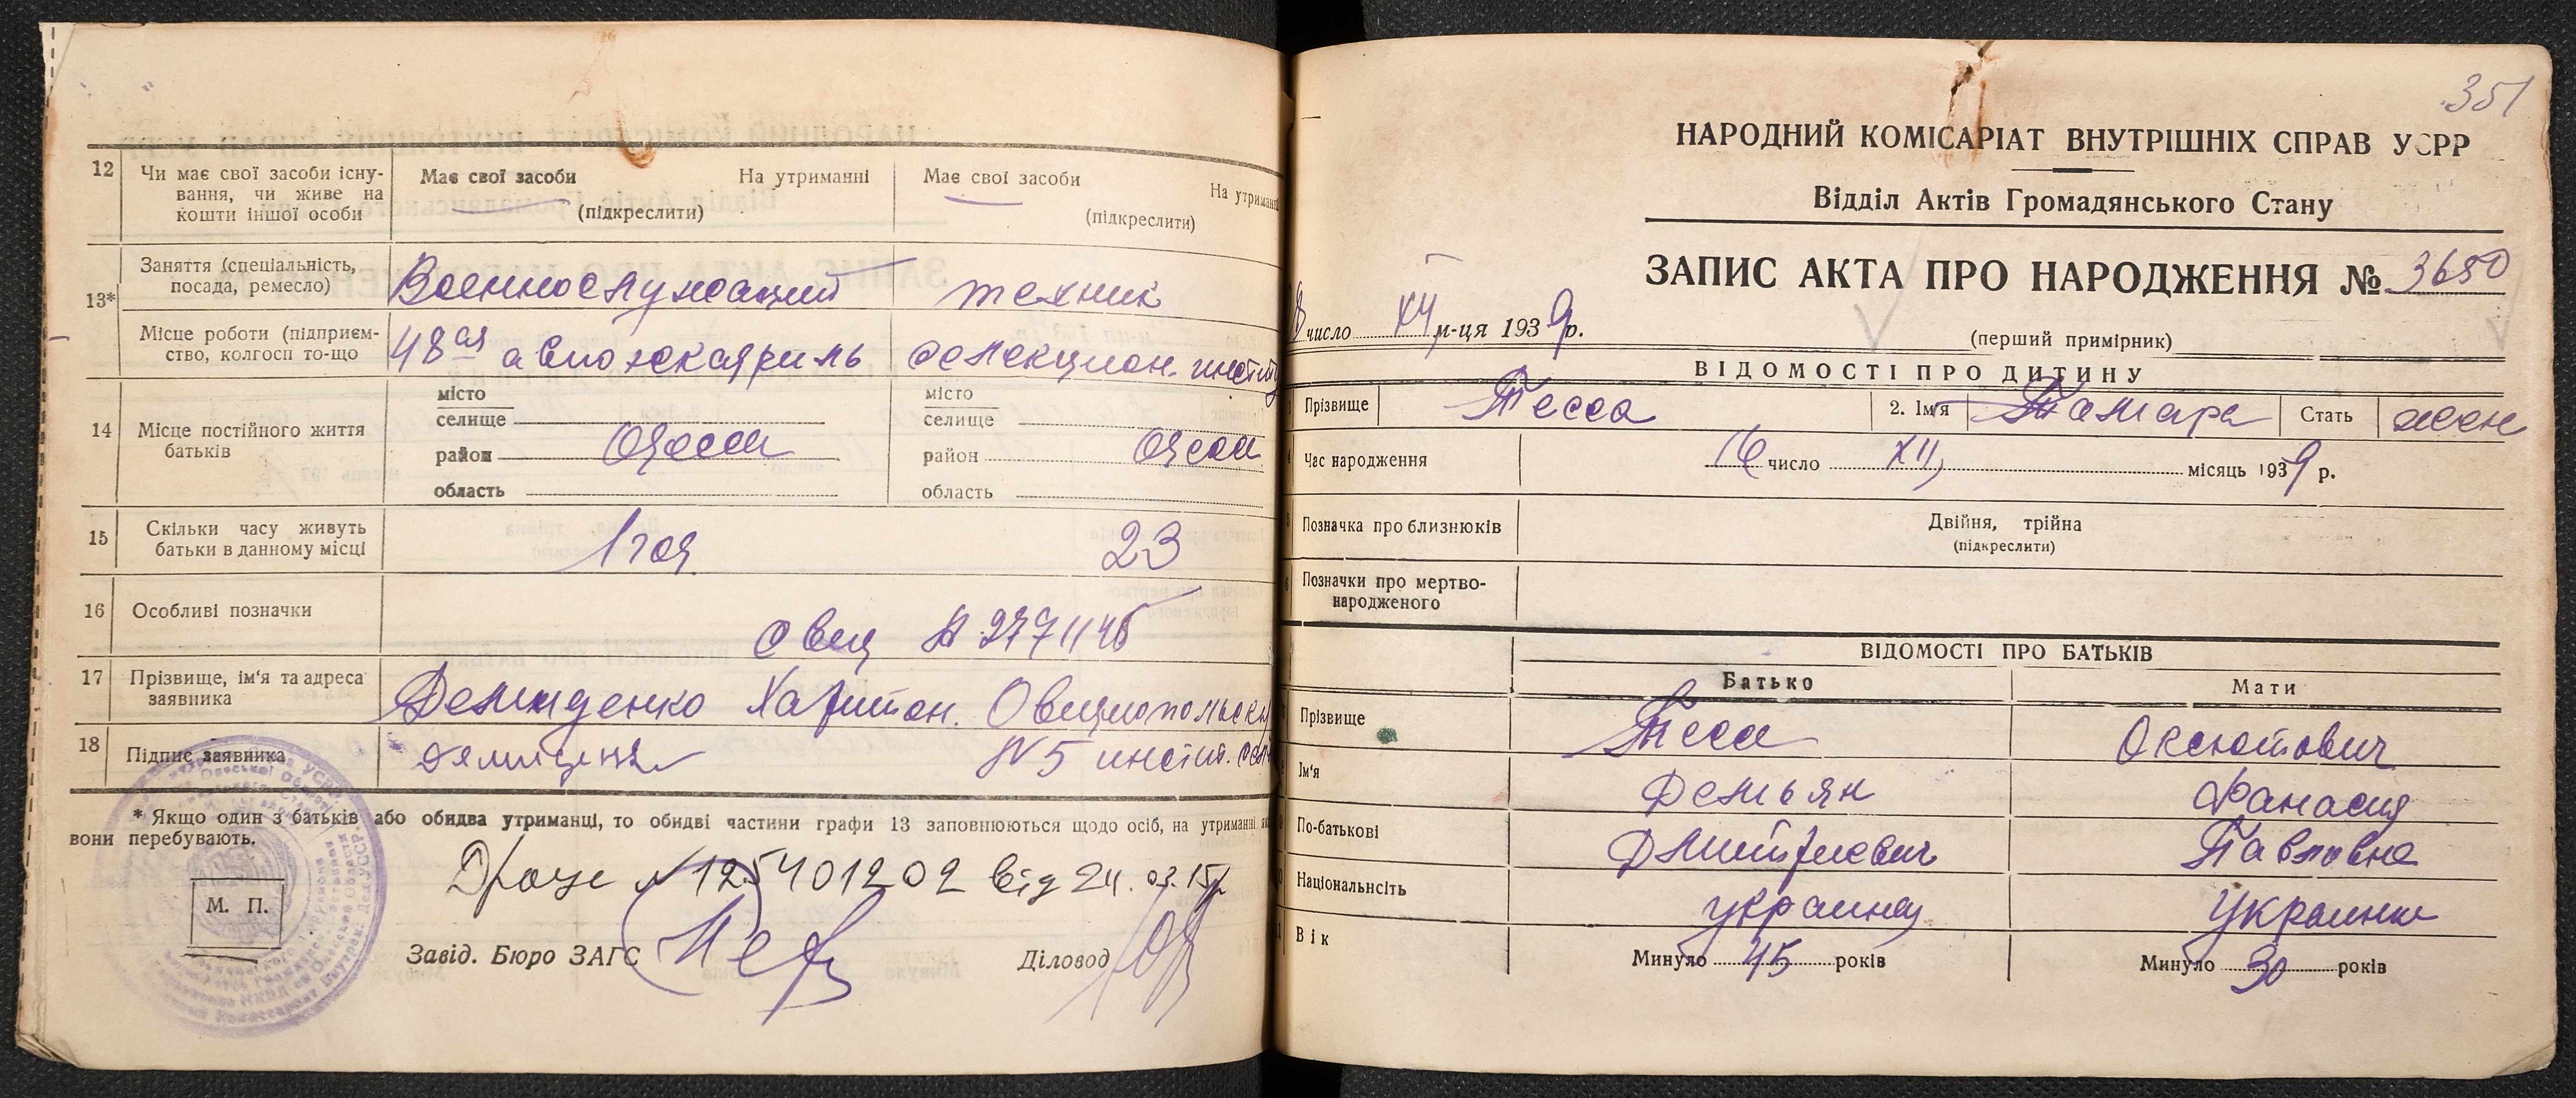 12
Чи має свої засоби існу-
вання, чи живе на
кошти іншої особи
Має свої засоби На утриманні
(підкреслити)
Має свої засоби На утриманні
(підкреслити)
13*
Заняття (спеціальність,
посада, ремесло)
Военнослужащий
техник
Місце роботи (підприєм-
ство, колгосп то-що
48ая
селекцион. инстит
14
Місце постійного життя
батьків
місто
селище
район Одесса
область
місто
селище
район Одесса
область
15
Скільки часу живуть
батьки в данному місці
1 год
23
16
Особливі позначки
17
Прізвище, ім'я та адреса
заявника
Харитон. Овидиопольск
18
Підпис заявника
№ 5 инстит.
* Якщо один з батьків або обидва утриманці, то обидві частини графи 13 заповнюються щодо осіб, на утриманні як
вони перебувають.
№ 125401202 від 24.03.15р
М. П.
Завід. Бюро ЗАГС
Діловод
351
НАРОДНИЙ КОМІСАРІАТ ВНУТРІШНІХ СПРАВ УСРР
Відділ Актів Громадянського Стану
ЗАПИС АКТА ПРО НАРОДЖЕННЯ № 3650
число м-ця 1939р.
(перший примірник)
ВІДОМОСТІ ПРО ДИТИНУ
Прізвище Тесса 2. Ім'я Тамара Стать жен
Час народження 16 число XII, місяць 1939 р.
Позначка про близнюків
Двійня, трійна
(підкреслити)
Позначки про мертво-
народженого
ВІДОМОСТІ ПРО БАТЬКІВ
Батько Мати
Прізвище Тесса Оксютович
Ім'я Демьян Фанасия
По-батькові Дмитриевич Павловна
Національнсіть украинец Украинка
Вік Минуло 45 років Минуло 30 років